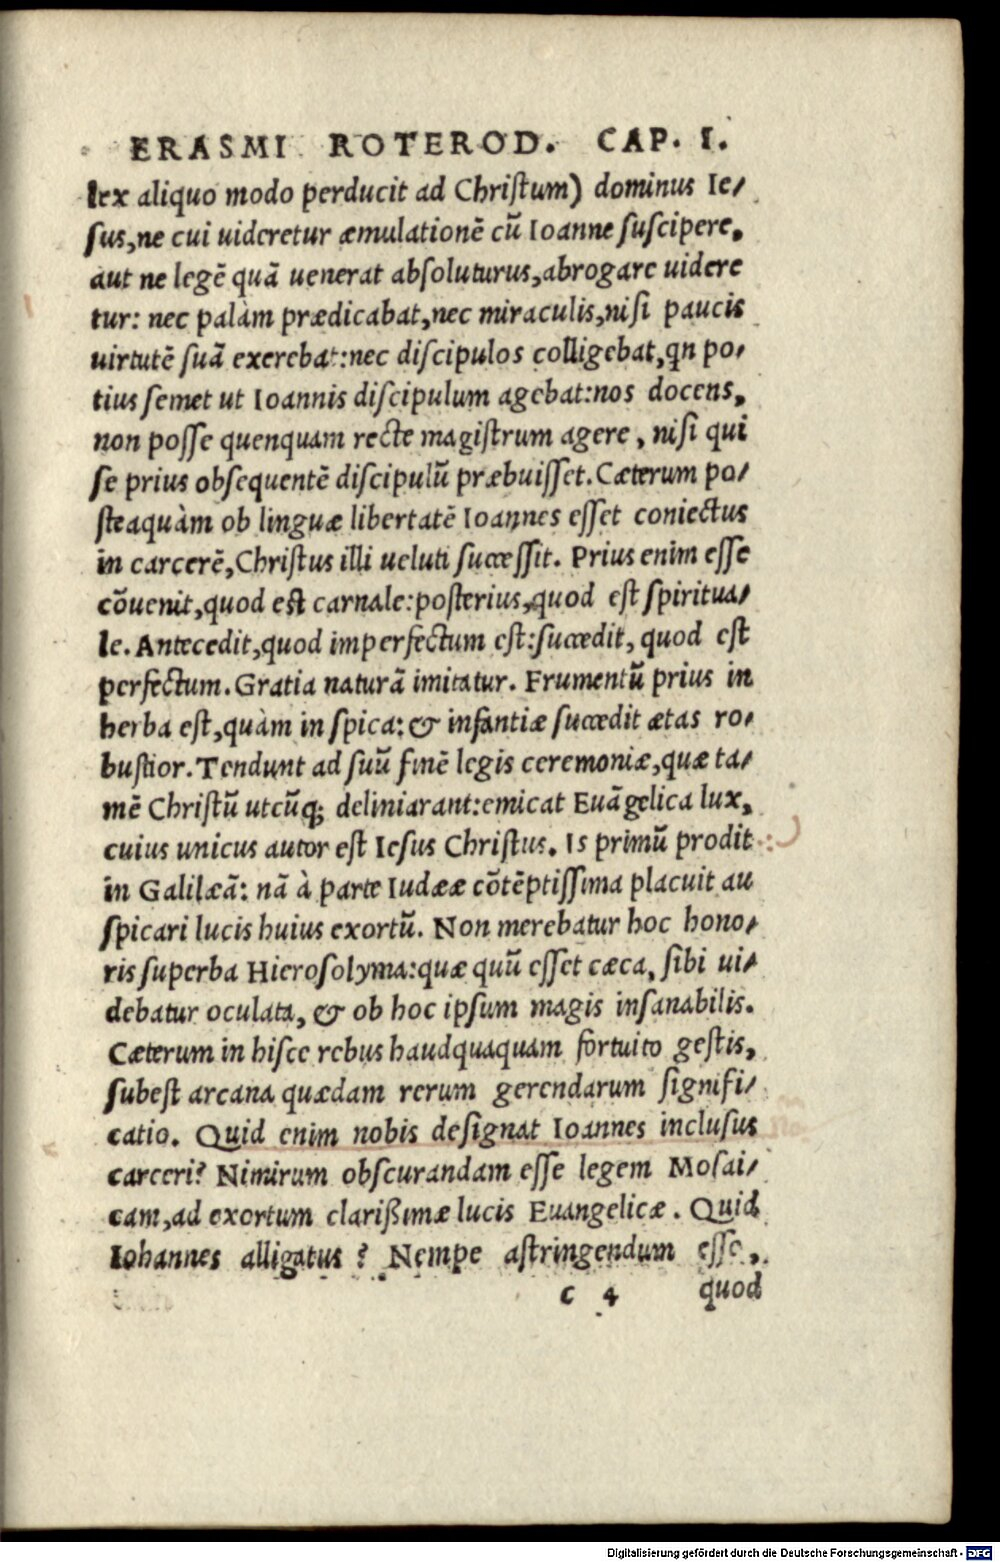 ERASMI ROTEROD. CAP. I.
lex aliquo modo perducit ad Christum) dominus Ie/
sus,ne cui uideretur æmulationē cū Ioanne suscipere,
aut ne legē quā uenerat absoluturus,abrogare uidere
tur: nec palàm prædicabat,nec miraculis,nisi paucis
uirtutē suā exerebat:nec discipulos colligebat,qn po/
tius semet ut Ioannis discipulum agebat:nos docens,
non posse quenquam recte magistrum agere, nisi qui
se prius obsequentē discipulū præbuisset.Cæterum po/
steaquàm ob linguæ libertatē Ioannes esset coniectus
in carcerē,Christus illi ueluti successit. Prius enim esse
cōuenit,quod est carnale:posterius,quod est spiritua/
le. Antecedit,quod imperfectum est:succedit, quod est
perfectum.Gratia naturā imitatur. Frumentū prius in
herba est,quàm in spica: & infantiæ succedit ætas ro/
bustior.Tendunt ad suū finē legis ceremoniæ,quæ ta/
mē Christū utcūq; deliniarant:emicat Euāgelica lux,
cuius unicus autor est Iesus Christus. Is primū prodit
in Galilæā: nā à parte Iudææ cōtēptissima placuit au
spicari lucis huius exortū. Non merebatur hoc hono/
ris superba Hierosolyma:quæ quū esset cæca, sibi ui/
debatur oculata, & ob hoc ipsum magis insanabilis.
Cæterum in hisce rebus haudquaquam fortuito gestis,
subest arcana quædam rerum gerendarum signifi/
catio. Quid enim nobis designat Ioannes inclusus
carceri? Nimirum obscurandam esse legem Mosai/
cam,ad exortum clarißimæ lucis Euangelicæ. Quid
Iohannes alligatus ? Nempe astringendum esse,
c 4 quod
Digitalisierung gefördert durch die Deutsche Forschungsgemeinschaft - DFG